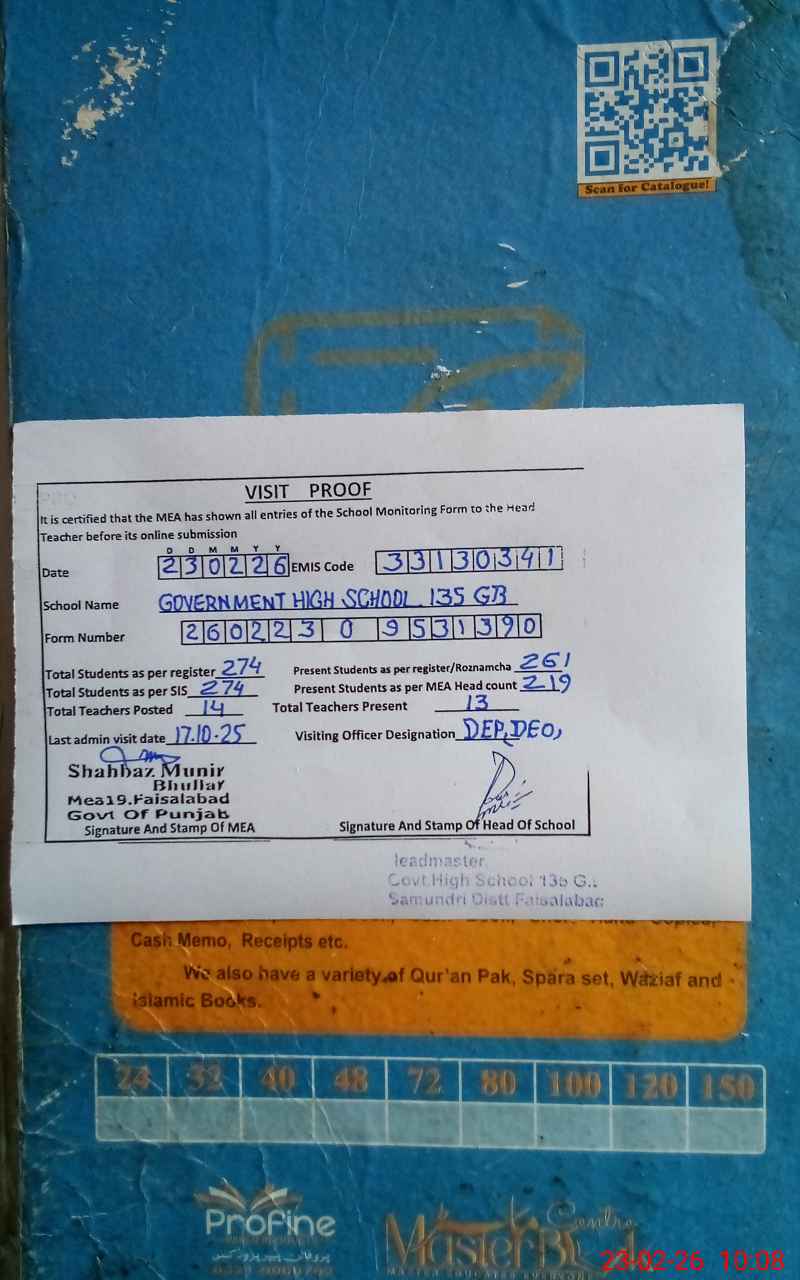 Scan for Catalogue!
VISIT PROOF
It is certified that the MEA has shown all entries of the School Monitoring Form to the Head
Teacher before its online submission
D D M M Y Y
Date 230226 EMIS Code 33130341
School Name GOVERNMENT HIGH SCHOOL 135 GB
Form Number 260223 0 9531390
Total Students as per register 274 Present Students as per register/Roznamcha 261
Total Students as per SIS 274 Present Students as per MEA Head count 219
Total Teachers Posted 14 Total Teachers Present 13
Last admin visit date 17.10.25 Visiting Officer Designation DEP, DEO,
Shahbaz Munir
Bhullar
Mea19.Faisalabad
Govt Of Punjab
Signature And Stamp Of MEA Signature And Stamp Of Head Of School
leadmaster
Govt.High School 135 G.
Samundri Distt Faisalabad
Cash Memo, Receipts etc.
We also have a variety of Qur'an Pak, Spara set, Waziaf and
Islamic Books.
24 32 40 48 72 80 100 120 150
ProFine
Centre
Master
23-02-26 10:08